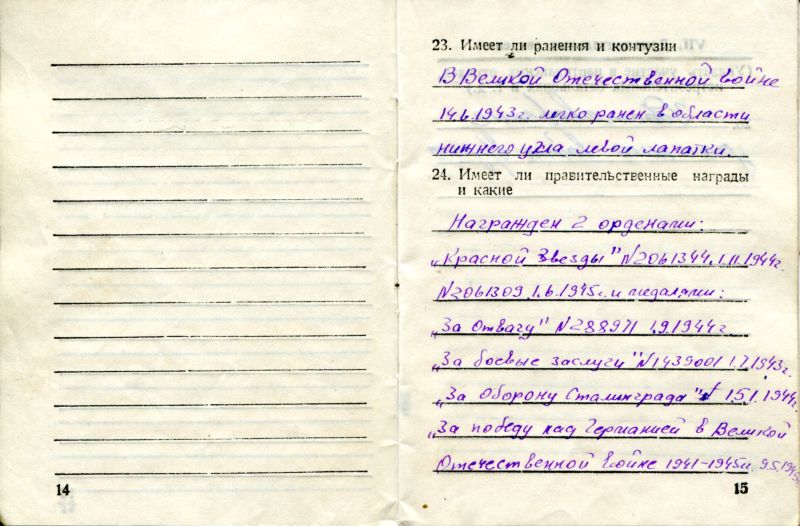 23. Имеет ли ранения и контузии
В Великой Отечественной войне
14.6.1943г. легко ранен в области
нижнего угла левой лапатки.
24. Имеет ли правительственные награды
и какие
Награжден 2 орденами:
„Красной Звезды" №2061344. 1.11.1944г.
№2061309. 1.6.1945г. и медалями:
„За отвагу" №288971 1.9.1944г
„За боевые заслуги" №1439001 1.7.1943г.
„За Оборону Сталинграда" 15.1.1944г.
„За победу над Германией в Великой
Отечественной войне 1941-1945гг. 9.5.1945
14
15